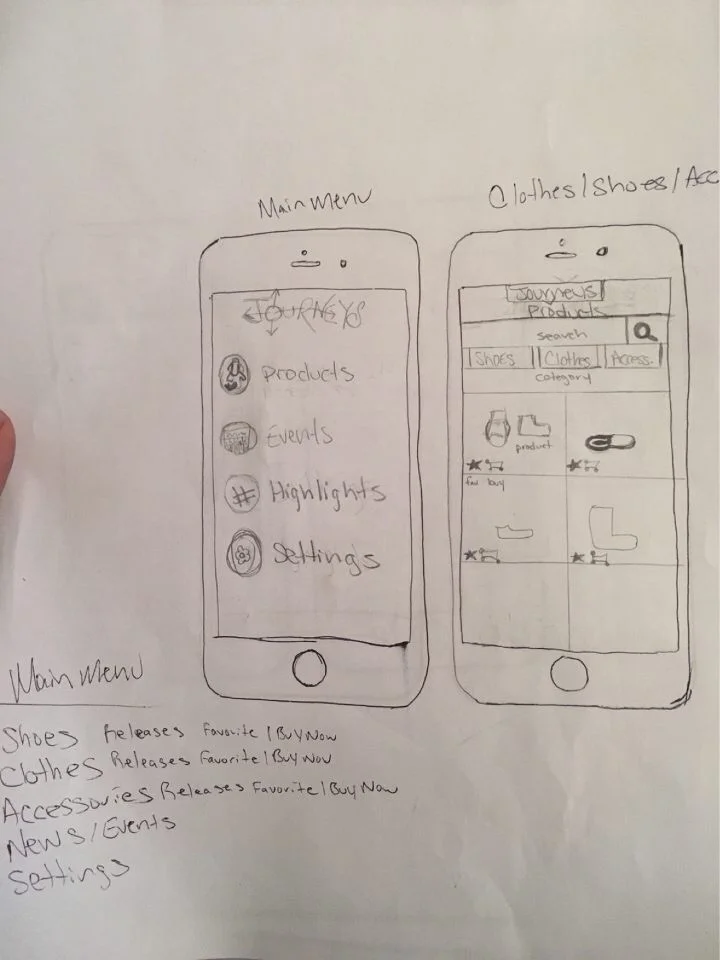 Main Menu
Clothes/Shoes/Acc
JOURNEYS
Products
Events
Highlights
Settings
Journeys
Products
search
Shoes Clothes Access.
category
product
fav buy
Main Menu
Shoes Releases Favorite/Buy Now
Clothes Releases Favorite/Buy Now
Accessories Releases Favorite/Buy Now
News/Events
Settings